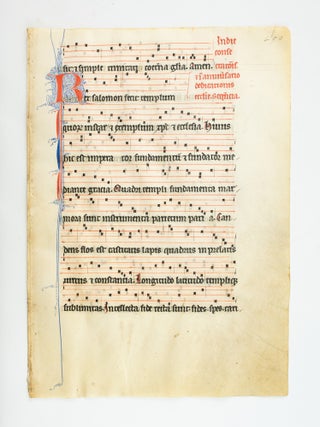 In die
conse
crationis
et anniversario
dedicationis
ecclie. Sequencia.
sit et simplex trinitati coeterna gloria. Amen.
Rex salomon fecit templum
quorum instar et exemplum xpc et ecclesia. Huius
hic est impera tor fundamentum et fundator me
diante gracia. Quadri templi fundamenta mar
mora sunt instrumenta parietum paria. Can
dens flos est castitatis lapis quadrus in prelatis
virtus et constantia. Longitudo latitudo templique
sublimitas. Intellecta fide recta sunt fides spes cari